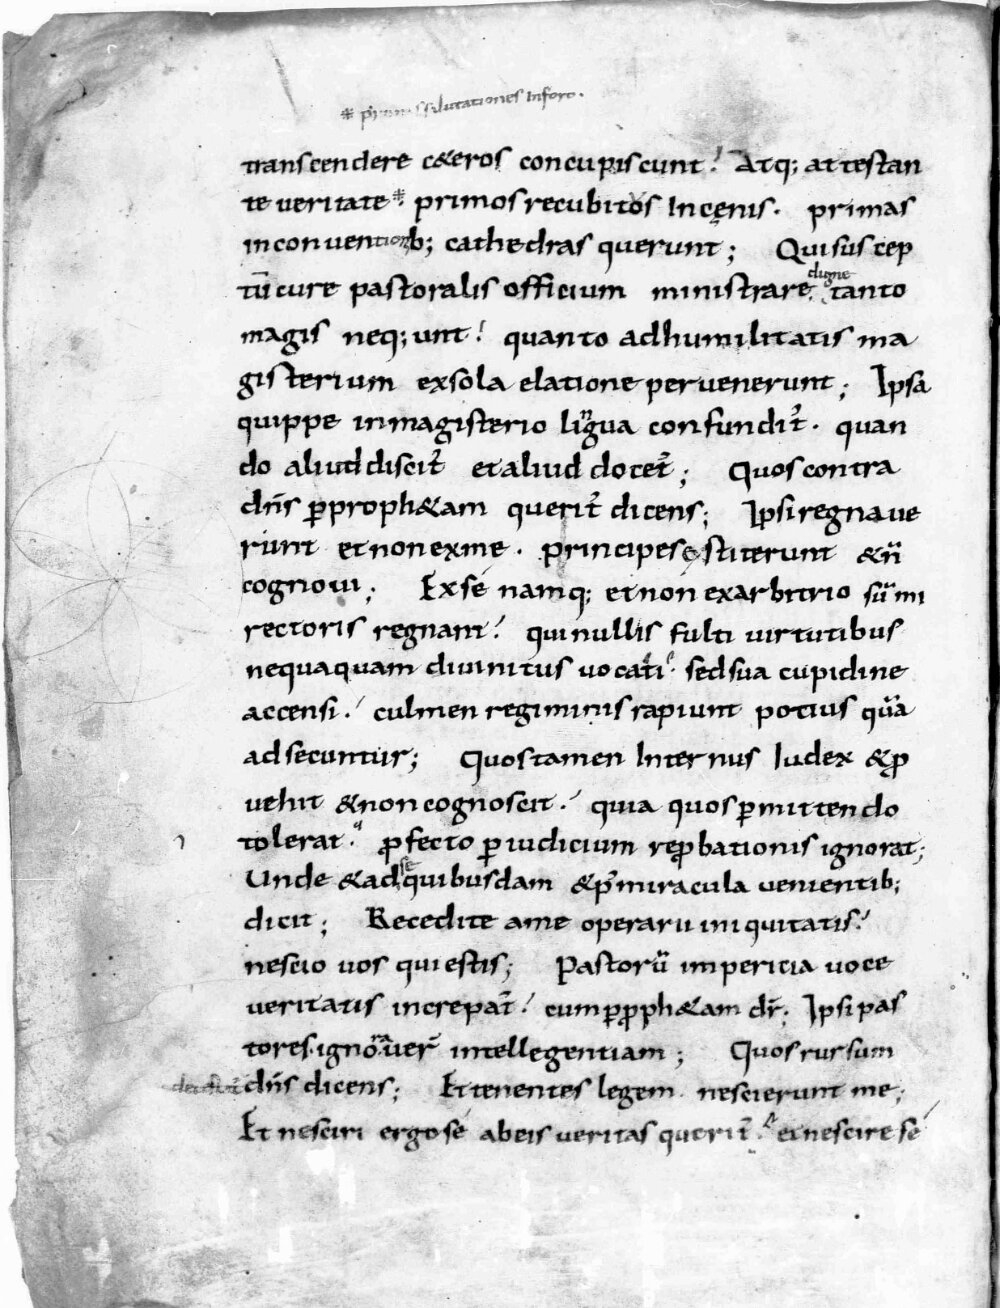 ※ primas salutationes In foro.
transcendere c&eros concupiscunt! Atq; attestan
te veritate ※ primos recubitos In cęnis. primas
in conventionib; cathedras querunt; Qui suscep
tū cure pastoralis officium ministrare digne tanto
magis neq;unt! quanto ad humilitatis ma
gisterium ex sola elatione pervenerunt; Ipsa
quippe in magisterio lingua confundit᷒. quan
do aliud discit᷒ et aliud docet᷒; Quos contra
dn̄s ꝑ proph&am querit᷒ dicens; Ipsi regnave
runt et non ex me. principes extiterunt & n̄
cognovi; Ex se namq; et non ex arbitrio sūmi
rectoris regnant! qui nullis fulti virtutibus
nequaquam divinitus vocati. sed sua cupidine
accensi! culmen regiminis rapiunt potius quā
adsecuntur; Quos tamen Internus Iudex & ꝓ
vehit & non cognoscit! quia quos ꝑmittendo
tolerat. ꝓfecto ꝑ iudicium reꝓbationis ignorat;
Unde & ad se quibusdam & p᷒ miracula venientib;
dicit; Recedite a me operarii iniquitatis!
nescio vos qui estis; Pastorū impericia voce
veritatis increpat᷒! cum ꝑ ꝓph&am dr̄. Ipsi pas
tores ignoraver̄ intellegentiam; Quos rursum
detestat᷒ dn̄s dicens; Et tenentes legem nescierunt me;
Et nesciri ergo se ab eis veritas querit᷒. et nescire se